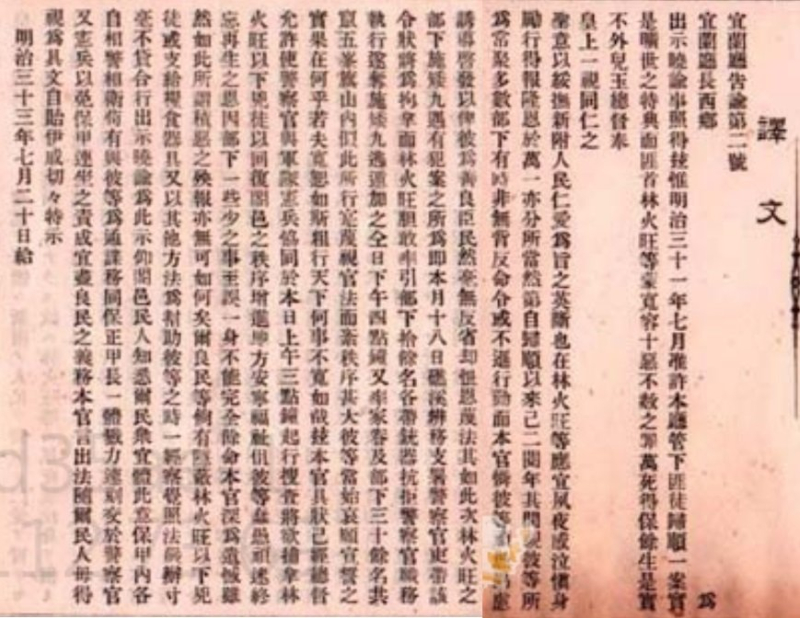 譯文
宜蘭廳告諭第二號
宜蘭廳長西鄉　為
出示曉諭事照得玆惟明治三十一年七月准許本廳管下匪徒歸順一案實
是曠世之特典而匪首林火旺等蒙寬容十惡不赦之罪萬死得保餘生是實
不外兒玉總督奉
皇上一視同仁之
聖意以綏撫新附人民仁愛為旨之英斷也在林火旺等應宜夙夜感泣慎身
勵行得報隆恩於萬一亦分所當然第自歸順以來已二閱年其間視彼等所
為常聚多數部下有時非無背反命令或不逞行動而本官憐彼等處
誘導啓發以俾彼為善良臣民然毫無反省却恨恩蔑法其如此次林火旺之
部下施矮九遇有犯案之所為即本月十八日礁溪辨務支署警察官吏帶該
令狀將為拘拿而林火旺胆敢率引部下拾餘名各帶銃器抗拒警察官職務
執行遂奪施矮九逃遁加之仝日下午四點鐘又率家眷及部下三十餘名共
竄五峯旗山內似此所行寔蔑視官法而紊秩序甚大彼等當始哀願宣誓之
實果在何乎若夫寬恕如斯粗行天下何事不寬如哉玆本官具狀已經總督
允許使警察官與軍隊憲兵協同於本日上午三點鐘起行搜查將欲捕拿林
火旺以下兇徒以回復闔邑之秩序增進地方安寧福祉俱彼等蠢愚頑迷終
忘再生之恩因部下一些少之事至誤一身不能完全餘命本官深為遺憾雖
然如此所謂積惡之殃報亦無可如何矣爾良民等倘有隱蔽林火旺以下兇
徒或支給糧食器具又以其他方法為幇助彼等之時一經察覺照法嚴辦寸
毫不貸合行出示曉諭為此示仰闔邑民人知悉爾民衆宜體此意保甲內各
自相警相衛苟有與彼等為通謀務同保正甲長一體戮力速刻交於警察官
又憲兵以免保甲連坐之責成宜盡良民之義務本官言出法隨爾民人毋得
視為具文自貽伊戚切々特示
明治三十三年七月二十日給